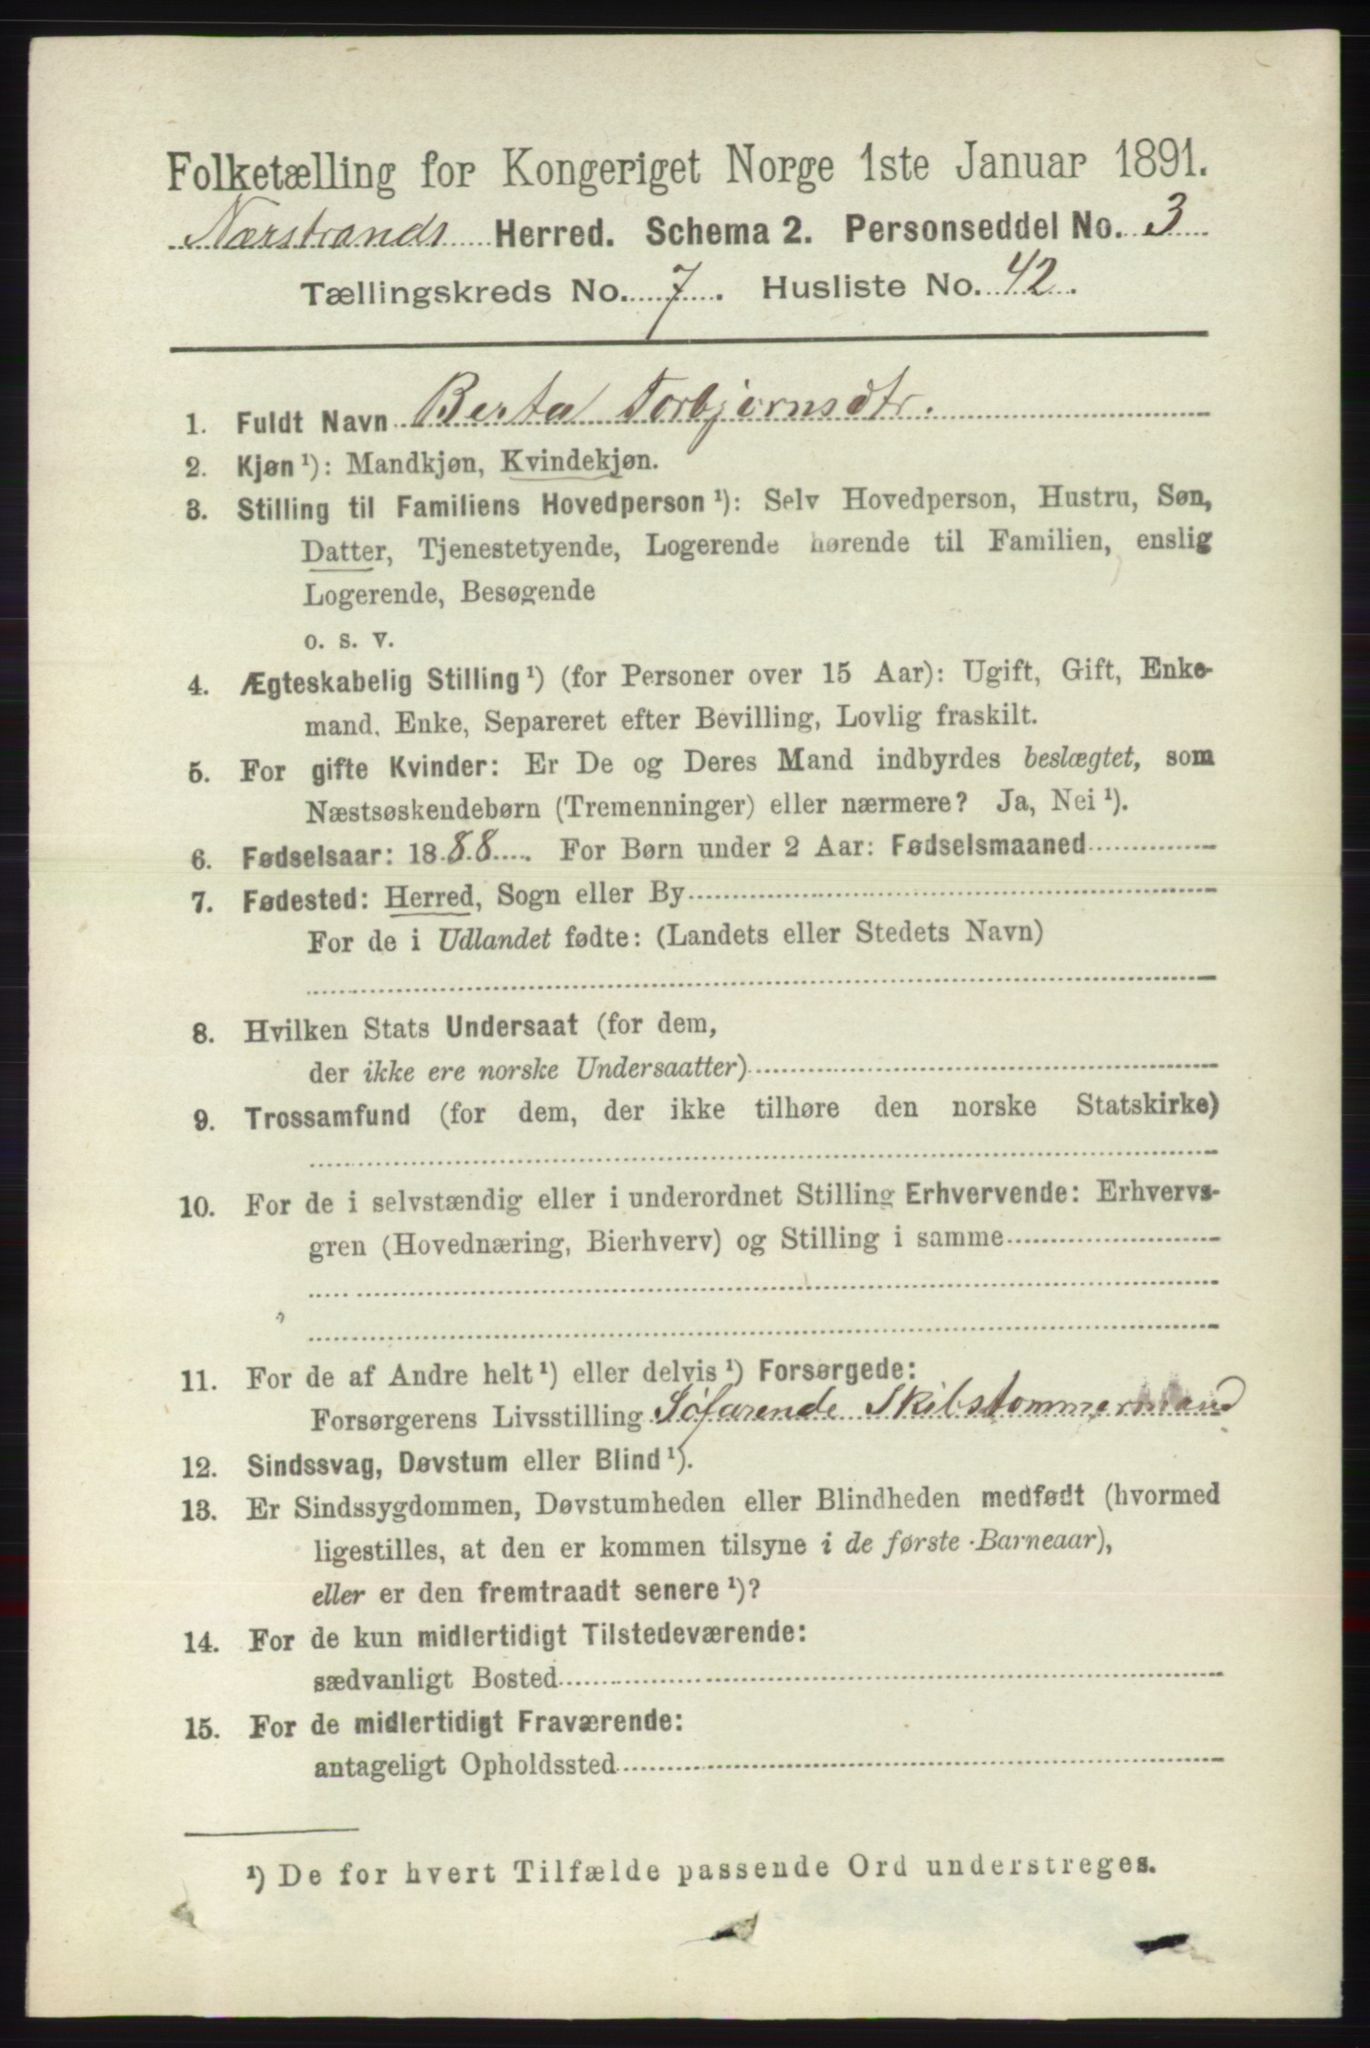 Folketælling for Kongeriget Norge 1ste Januar 1891.
Nærstrands Herred. Schema 2. Personseddel No. 3
Tællingskreds No. 7. Husliste No. 42.
1. Fuldt Navn Berta Torbjørnsdtr.
2. Kjøn ¹): Mandkjøn, Kvindekjøn.
3. Stilling til Familiens Hovedperson ¹): Selv Hovedperson, Hustru, Søn,
Datter, Tjenestetyende, Logerende hørende til Familien, enslig
Logerende, Besøgende
o. s. v.
4. Ægteskabelig Stilling ¹) (for Personer over 15 Aar): Ugift, Gift, Enke-
mand, Enke, Separeret efter Bevilling, Lovlig fraskilt.
5. For gifte Kvinder: Er De og Deres Mand indbyrdes beslægtet, som
Næstsøskendebørn (Tremenninger) eller nærmere? Ja, Nei ¹).
6. Fødselsaar: 1888. For Børn under 2 Aar: Fødselsmaaned
7. Fødested: Herred, Sogn eller By
For de i Udlandet fødte: (Landets eller Stedets Navn)
8. Hvilken Stats Undersaat (for dem,
der ikke ere norske Undersaatter)
9. Trossamfund (for dem, der ikke tilhøre den norske Statskirke)
10. For de i selvstændig eller i underordnet Stilling Erhvervende: Erhvervs-
gren (Hovednæring, Bierhverv) og Stilling i samme
11. For de af Andre helt ¹) eller delvis ¹) Forsørgede:
Forsørgerens Livsstilling Søfarende Skibstømmermand
12. Sindssvag, Døvstum eller Blind ¹).
13. Er Sindssygdommen, Døvstumheden eller Blindheden medfødt (hvormed
ligestilles, at den er kommen tilsyne i de første Barneaar),
eller er den fremtraadt senere ¹)?
14. For de kun midlertidigt Tilstedeværende:
sædvanligt Bosted
15. For de midlertidigt Fraværende:
antageligt Opholdssted
¹) De for hvert Tilfælde passende Ord understreges.